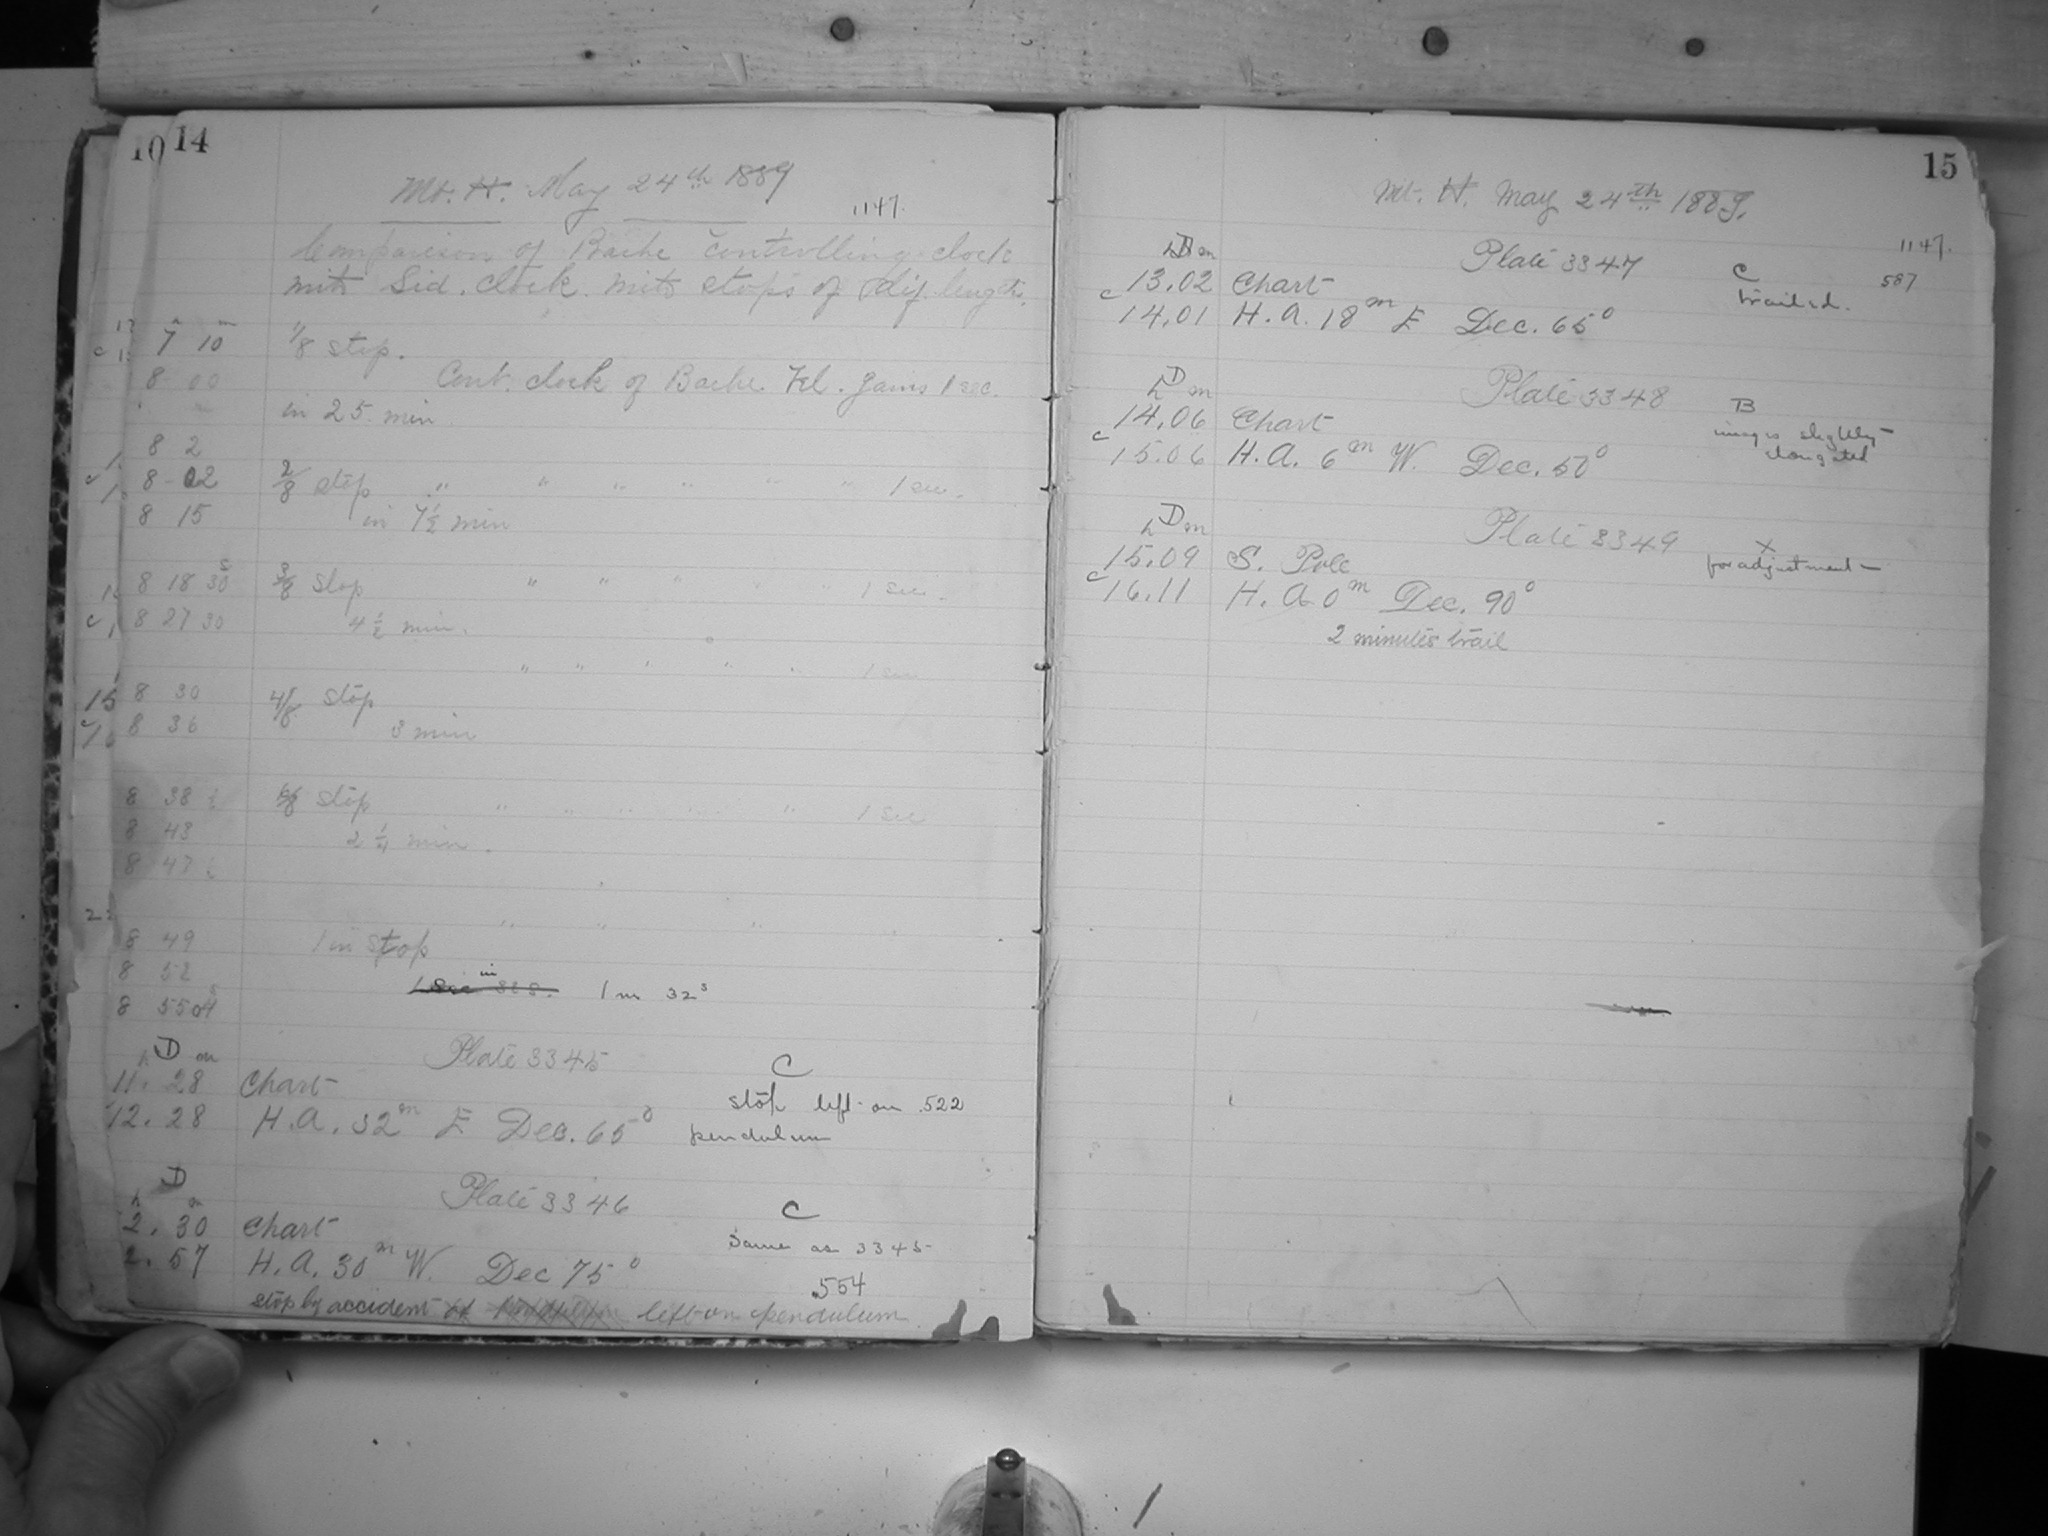 10 14
Mt. H. May 24th 1889
1147.
Comparison of Bache controlling clock
with Sid. clock with stops of dif. lengths.
7 10 1/8 stop.
8 00 Cont. clock of Bache Tel. gains 1 sec.
in 25 min
8 2
8 02 2/8 stop " " " " " " 1 sec.
8 15 in 7 1/2 min
8 18 30s 3/8 stop " " " " " 1 sec.
8 27 30 4 1/2 min.
" " " " " 1 sec
8 30 4/8 stop
8 36 3 min
8 38 1/2 stop " " " " " 1 sec
8 43 2 1/4 min.
8 47
" " " "
8 49 1 in stop
8 52
1 m 32s
8 55 04s
h D m Plate 3345 C
11. 28 Chart
stop left on .522
12. 28 H.A. 32m E Dec. 65° pendulum
D
h m Plate 3346 C
2. 30 Chart
Same as 3345
2. 57 H.A. 30m W. Dec 75° .554
stop by accident left on pendulum
15
Mt. H. May 24th 1889.
1147.
h D m Plate 3347 C 587
13.02 Chart trailed.
c 14.01 H.A. 18m E Dec. 65°
h D m Plate 3348 B
14.06 Chart images slightly
elongated
c 15.06 H.A. 6m W. Dec. 50°
h D m Plate 3349 X
15.09 S. Pole for adjustment
c 16.11 H.A. 0m Dec. 90°
2 minutes trail